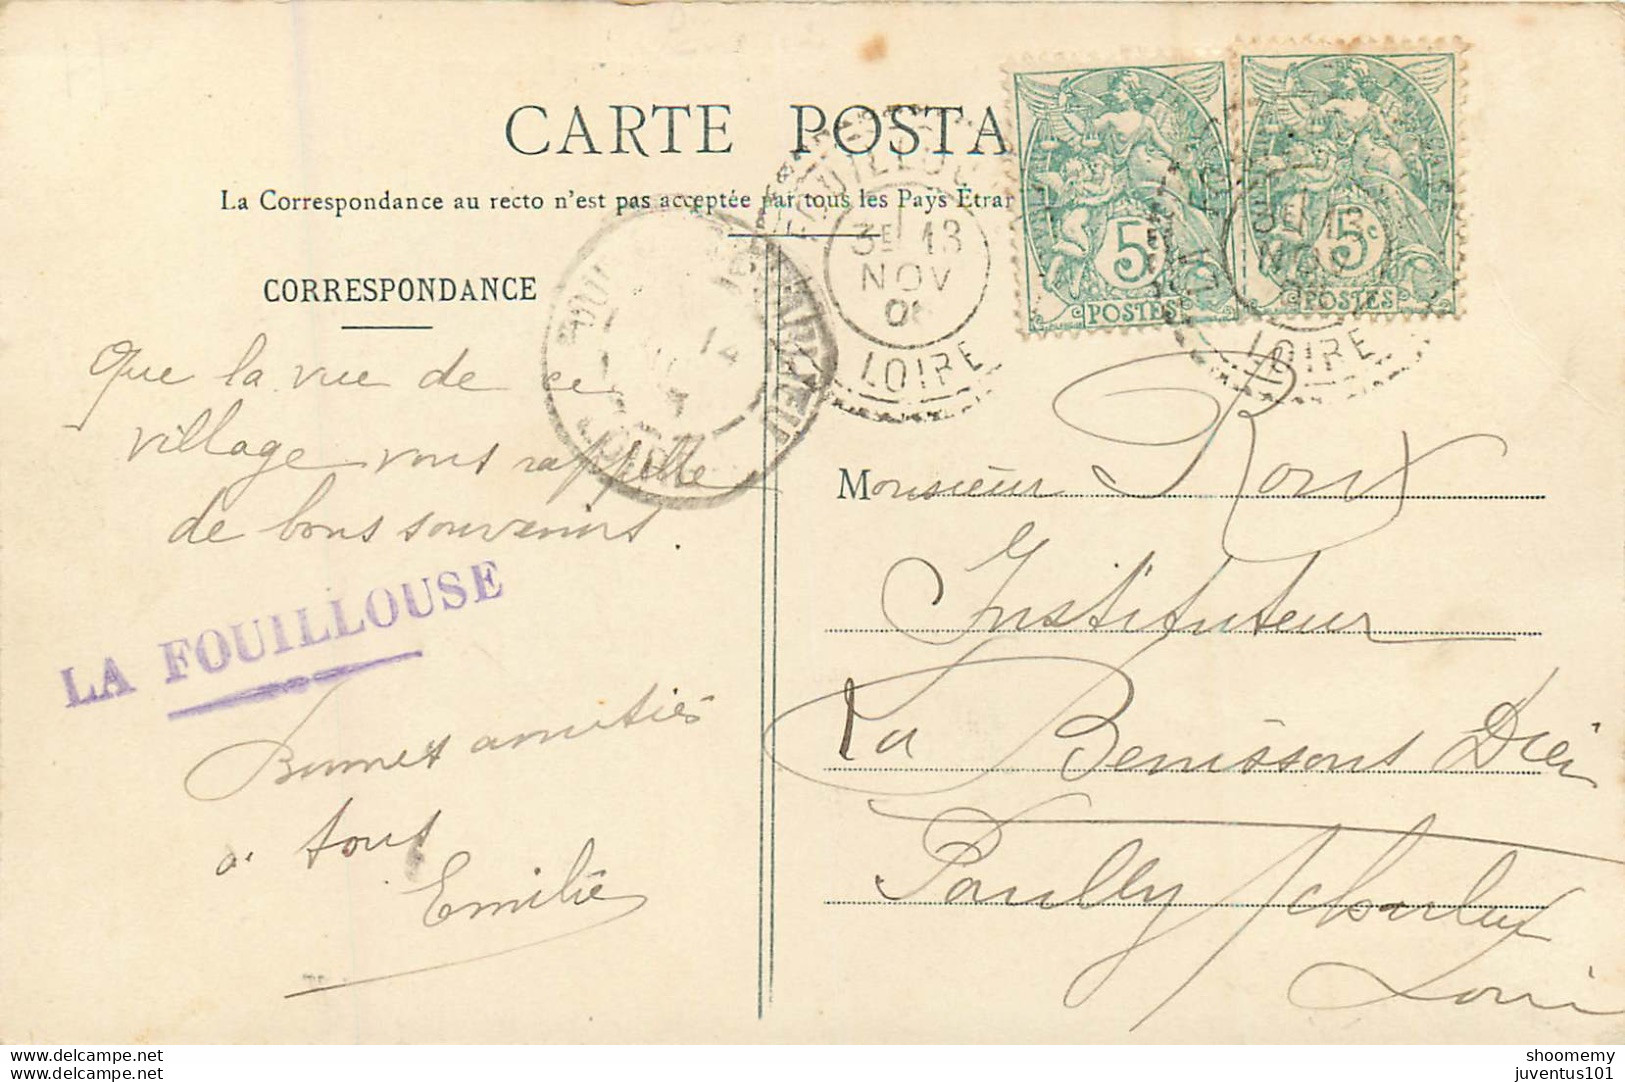 CARTE POSTA
La Correspondance au recto n'est pas acceptée par tous les Pays Étran
CORRESPONDANCE
Que la vue de ce
village vous rappelle
de bons souvenirs.
LA FOUILLOUSE
Bonnes amitiés
à tous
Emilie
FOUILLOUSE
3E 13
NOV
LOIRE
5c
POSTES
5c
POSTES
LA FOUILLOUSE
3E 13
NOV
LOIRE
14
Monsieur Roux
Instituteur
La Benissons Dieu
Pouilly s/ Charlieu
Loire
www.delcampe.net
your username
shoomemy
juventus101